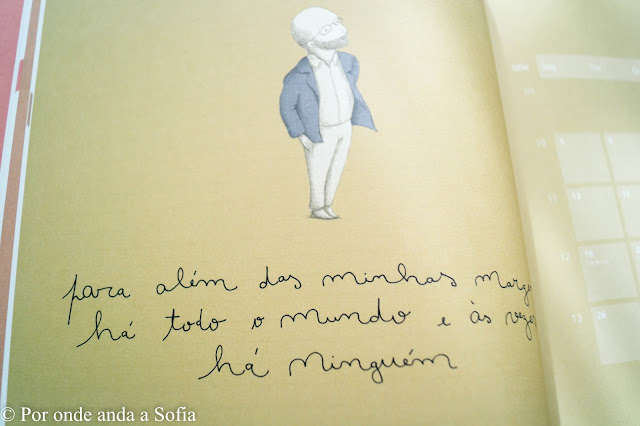 para além das minhas marge
há todo o mundo e às vezes
há ninguém
10
11
12
13
26
© Por onde anda a Sofia